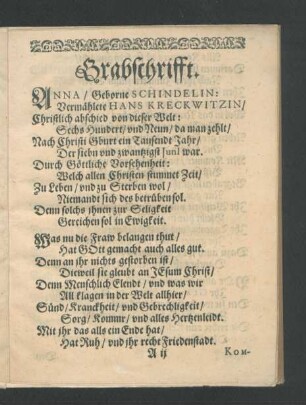 Grabschrifft.
ANNA / Geborne SCHINDELIN:
Vermählete HANS KRECKWITZIN /
Christlich abschied von dieser Welt:
Sechs Hundert / vnd Neun / da man zehlt /
Nach Christi Gburt ein Tausendt Jahr /
Der siebn vnd zwantzigst JunI war.
Durch Göttliche Vorsehenheit:
Welch allen Christen stimmet Zeit /
Zu Leben / vnd zu Sterben wol /
Niemandt sich des betrüben sol.
Denn solchs ihnen zur Seligkeit
Gereichen sol in Ewigkeit.
Was nu die Fraw belangen thut /
Hat GOtt gemacht auch alles gut.
Denn an ihr nichts gestorben ist /
Dieweil sie gleubt an JEsum Christ /
Denn Menschlich Elende / vnd was wir
All klagen in der Welt allhier /
Sünd / Kranckheit / vnd Gebrechligkeit /
Sorg / Kommr / vnd alles Hertzenleidt.
Mit ihr das alls ein Ende hat /
Hat Ruh / vnd ihr recht Friedenstadt.
A ij KOM-